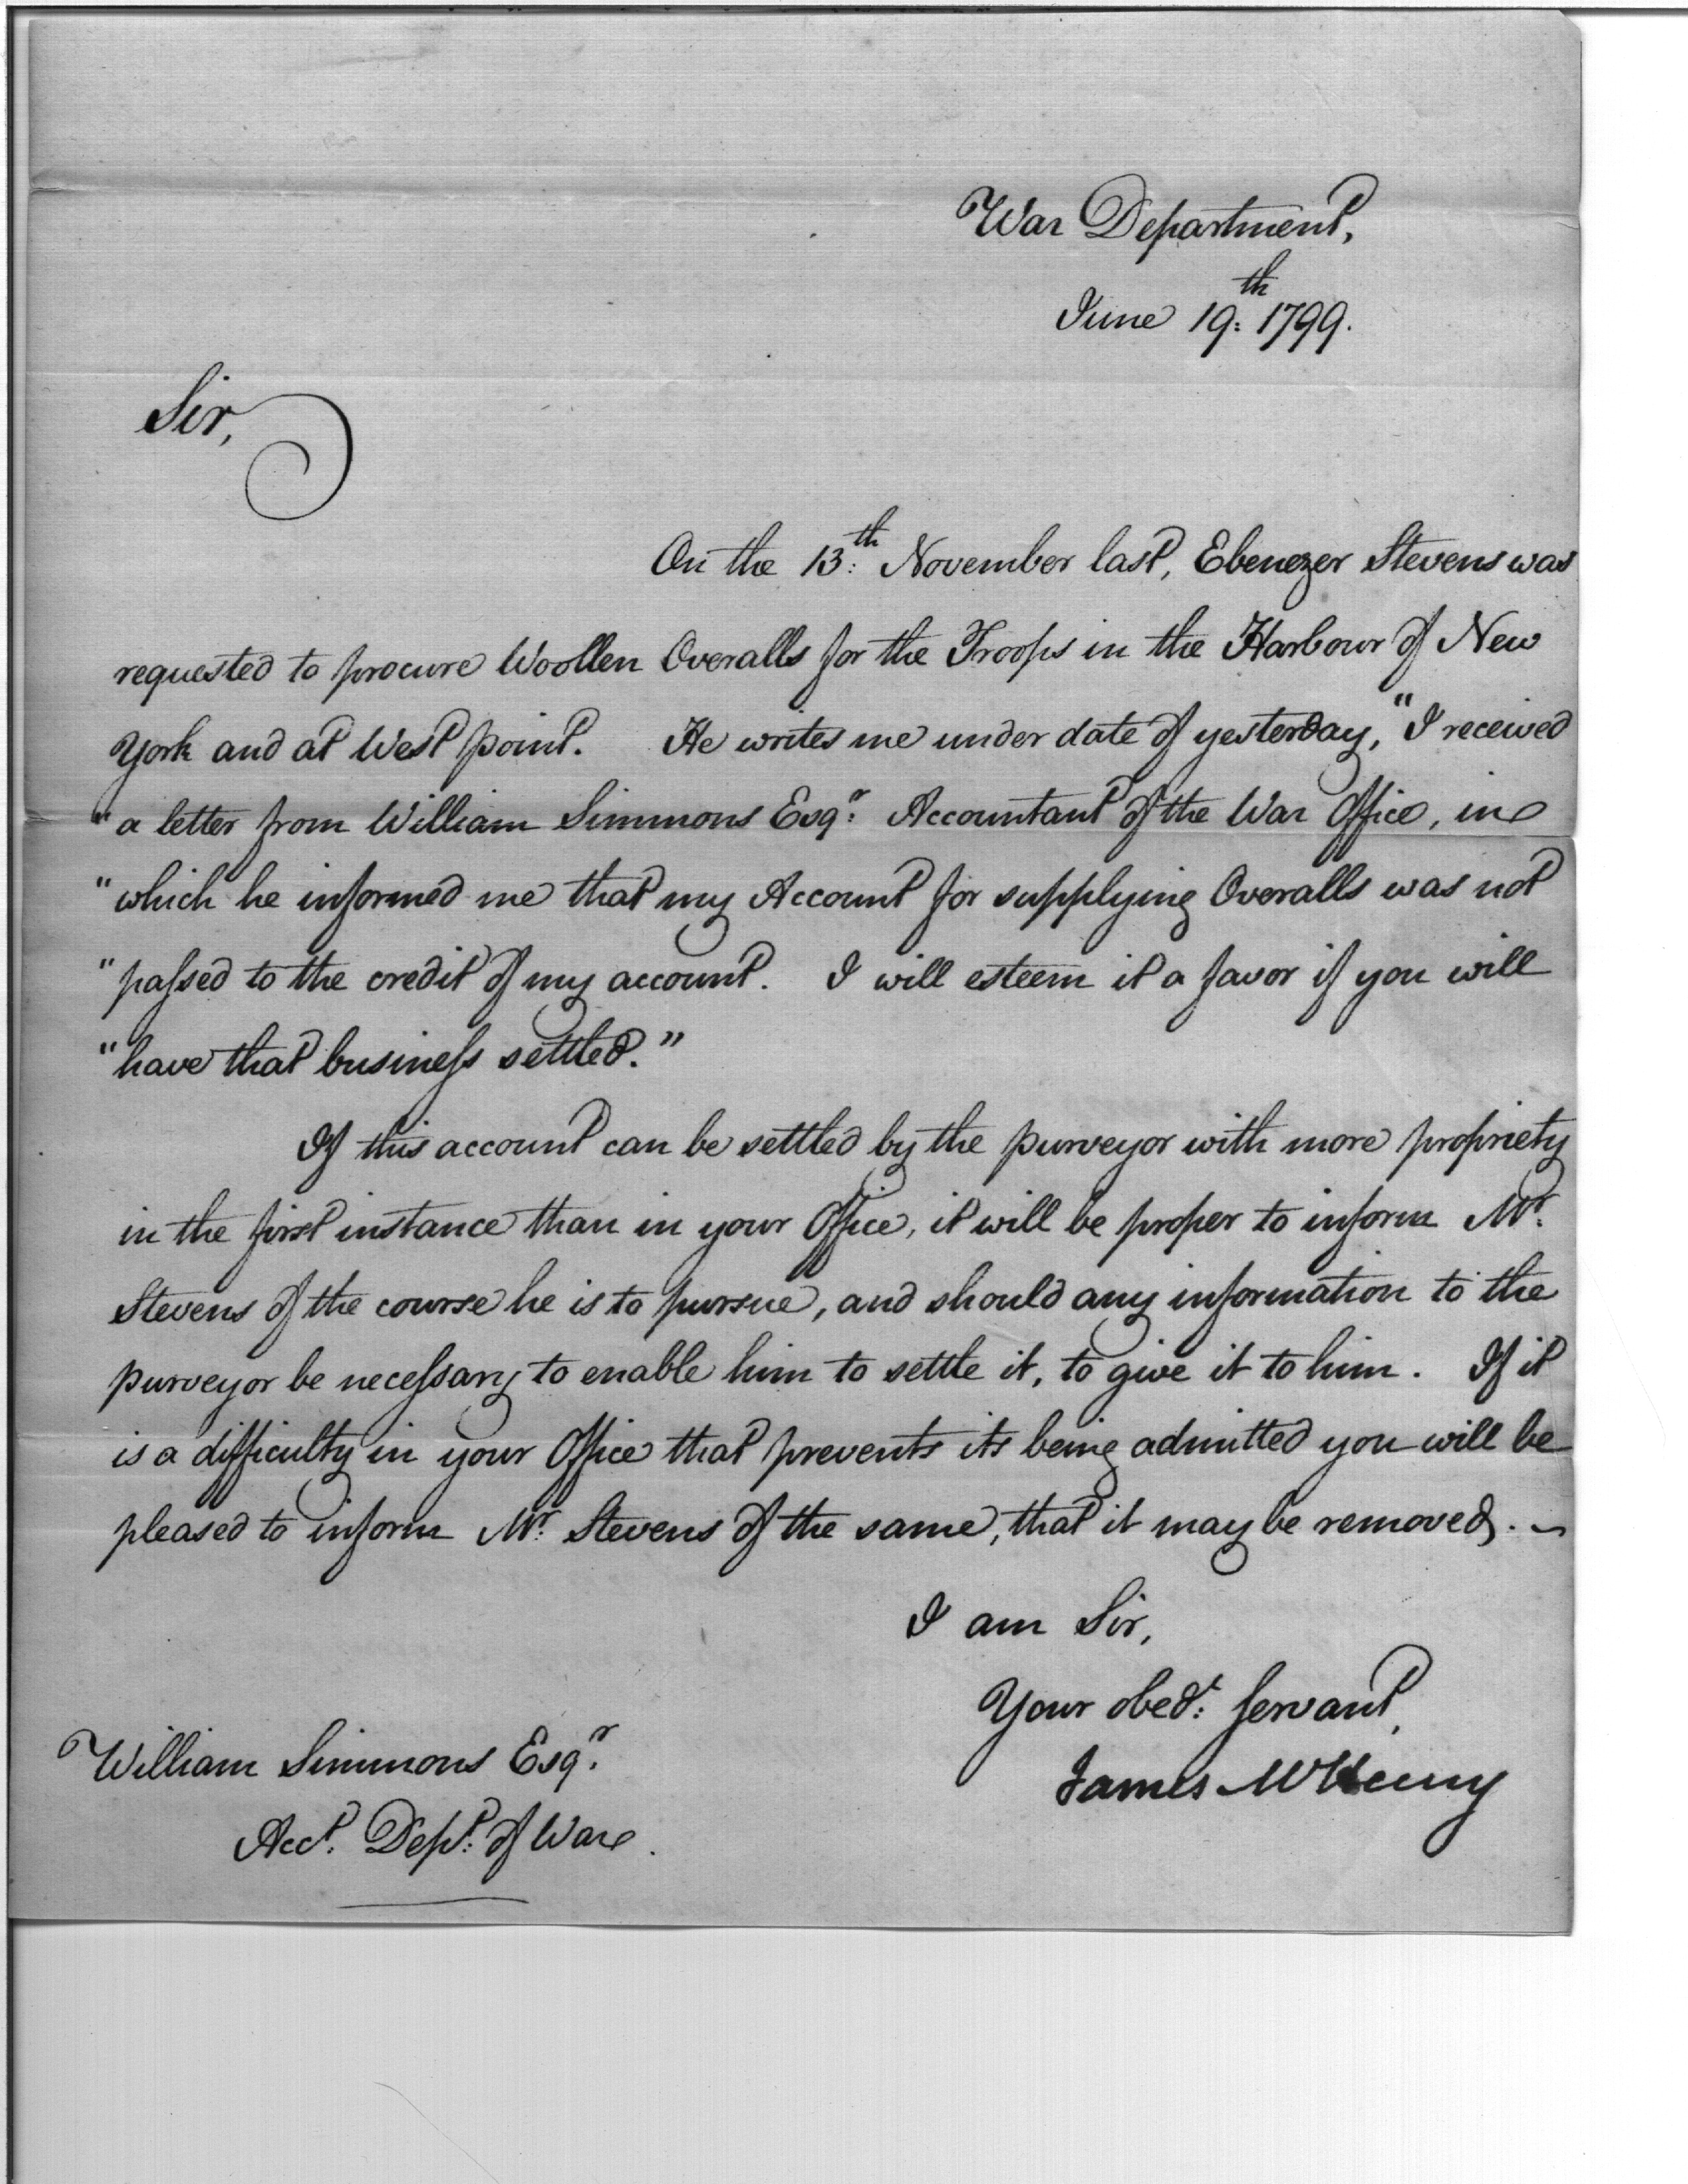 War Department,
June 19th: 1799.
Sir,
On the 13th: November last, Ebenezer Stevens was
requested to procure Woollen Overalls for the Troops in the Harbour of New
York and at West point. He writes me under date of yesterday, "I received
"a letter from William Simmons Esqr: Accountant of the War Office, in
"which he informed me that my Account for supplying Overalls was not
"paſsed to the credit of my account. I will esteem it a favor if you will
"have that busineſs settled."
If this account can be settled by the purveyor with more propriety
in the first instance than in your Office, it will be proper to inform Mr.
Stevens of the course he is to pursue, and should any information to the
purveyor be neceſsary to enable him to settle it, to give it to him. If it
is a difficulty in your Office that prevents its being admitted you will be
pleased to inform Mr: Stevens of the same, that it may be removed. ~
I am Sir,
Your obedt: servant,
James McHenry
William Simmons Esqr.
Acct. Dept: of War.